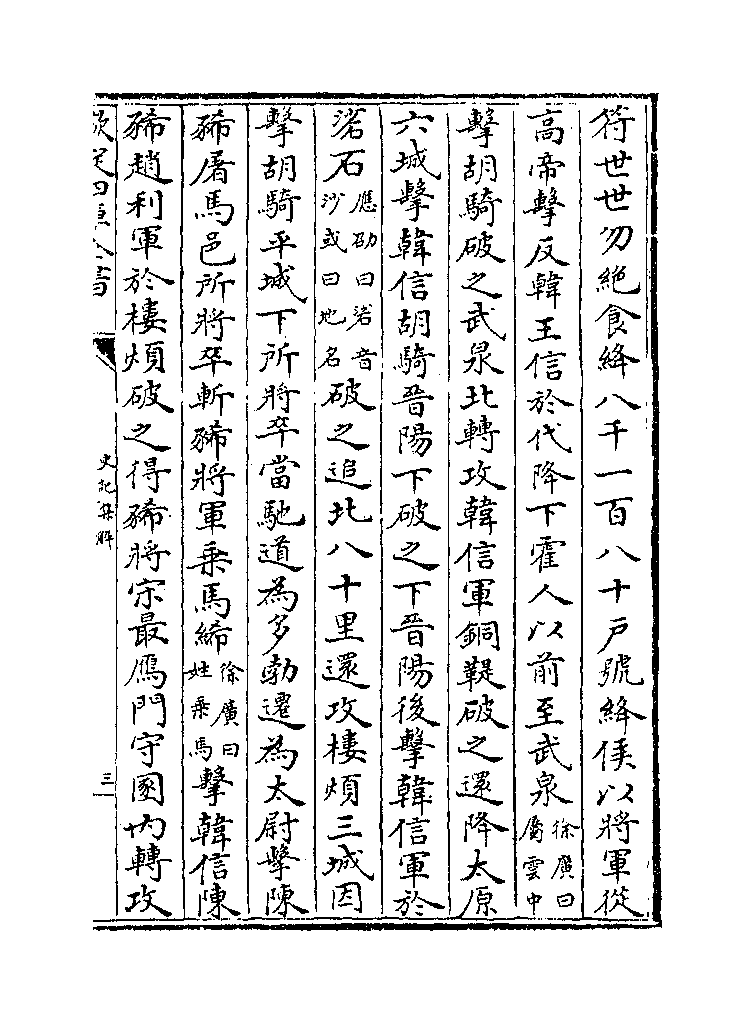 符世世勿絶食絳八千一百八十戸號絳侯以將軍從
高帝擊反韓王信於代降下霍人以前至武泉徐廣曰屬雲中
擊胡騎破之武泉北轉攻韓信軍銅鞮破之還降太原
六城擊韓信胡騎晉陽下破之下晉陽後擊韓信軍於
硰石應劭曰硰音沙或曰地名破之追北八十里還攻樓煩三城因
擊胡騎平城下所將卒當馳道為多勃遷為太尉擊陳
豨屠馬邑所將卒斬豨將軍乗馬絺徐廣曰姓乗馬擊韓信陳
豨趙利軍於樓煩破之得豨將宋最鴈門守圂内轉攻
欽定四庫全書
史記集解
三